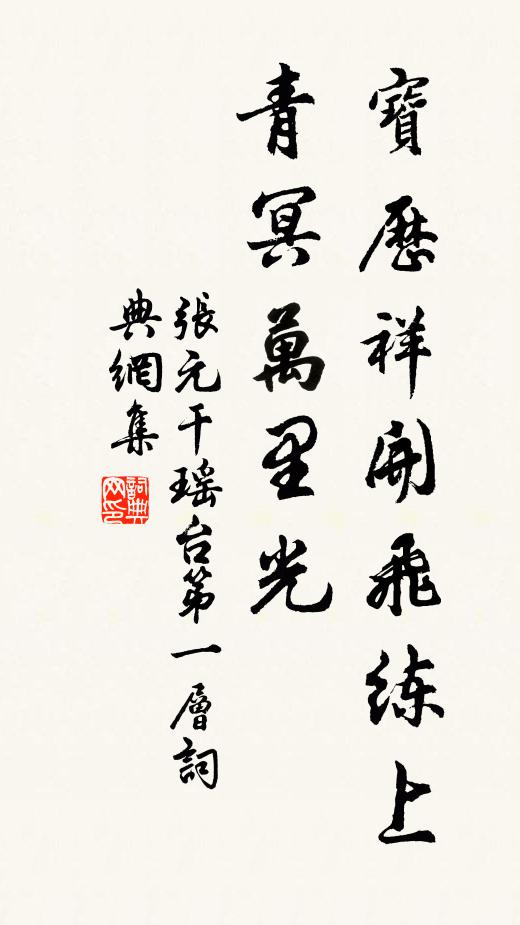 寶歷祥開飛練上
青冥萬里光
張元干瑤台第一層詞
典網集
詞典网印